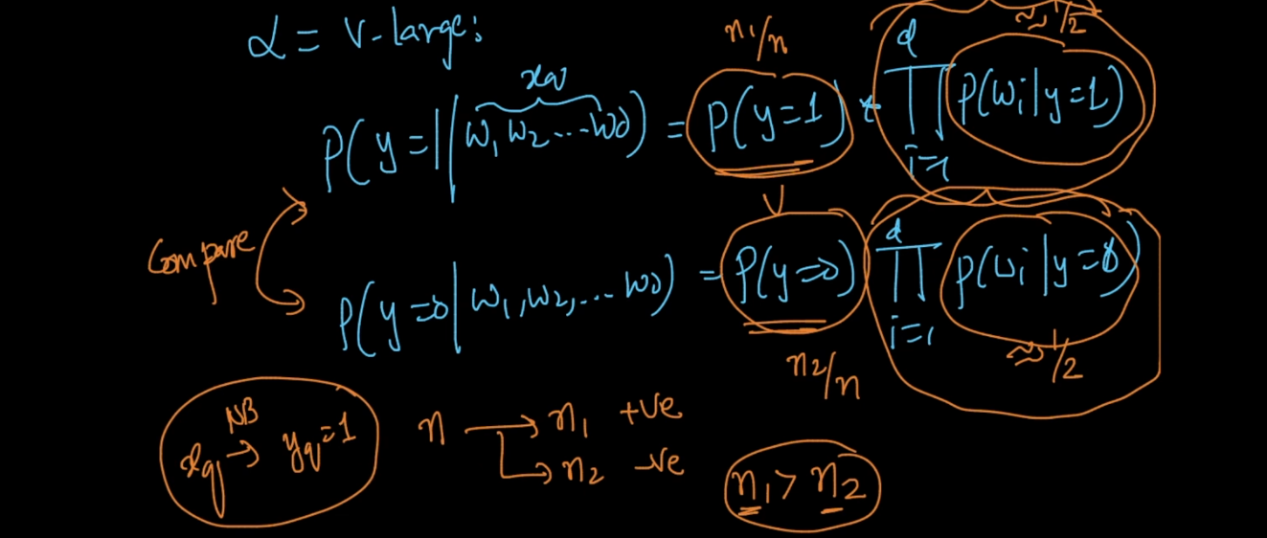 α = v-large:
n₁/n
≈ 1/2
x_q
P(y=1|w₁, w₂ ... w_d) = P(y=1) * ∏_{i=1}^{d} P(w_i|y=1)
Compare
P(y=0|w₁, w₂, ... w_d) = P(y=0) ∏_{i=1}^{d} P(w_i|y=0)
n₂/n
≈ 1/2
NB
x_q → y_q=1
n → n₁ +ve
→ n₂ -ve
n₁ > n₂